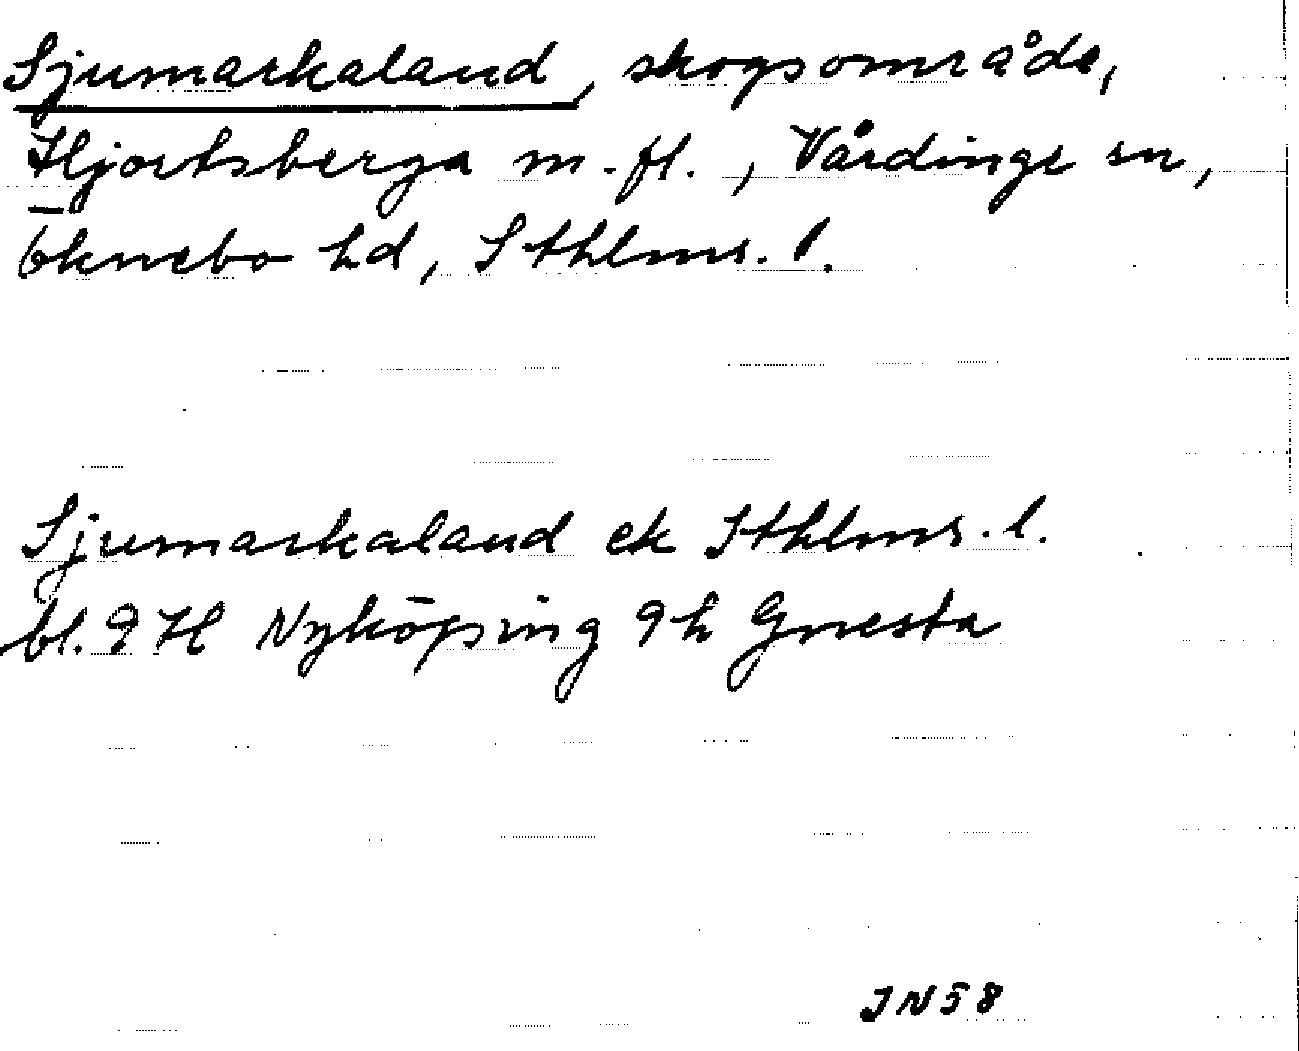 Sjumarkaland, skogsområde,
Hjortsberga m.fl., Vårdinge sn,
Öknebo hd, Sthlms. l.
Sjumarkaland ek Sthlms. l.
bl. 9 H Nyköping 9 h Gnesta
JN58